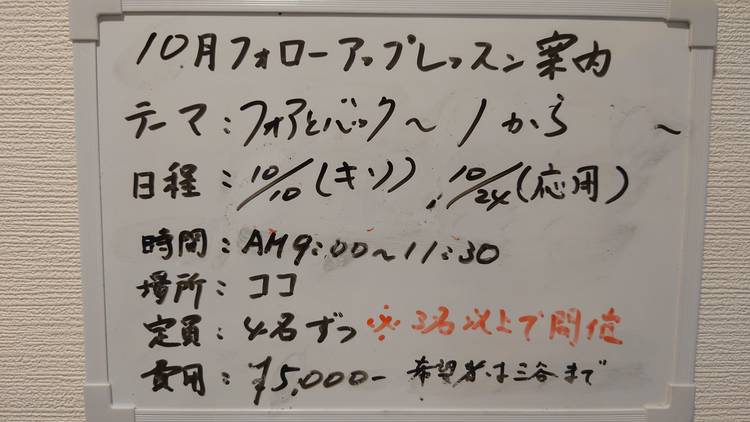 10月フォローアップレッスン案内
テーマ:フォアとバック〜1から〜
日程:10/10(キソ)、10/24(応用)
時間:AM9:00〜11:30
場所:ココ
定員:4名ずつ ※3名以上で開催
費用:¥5,000- 希望者は三谷まで